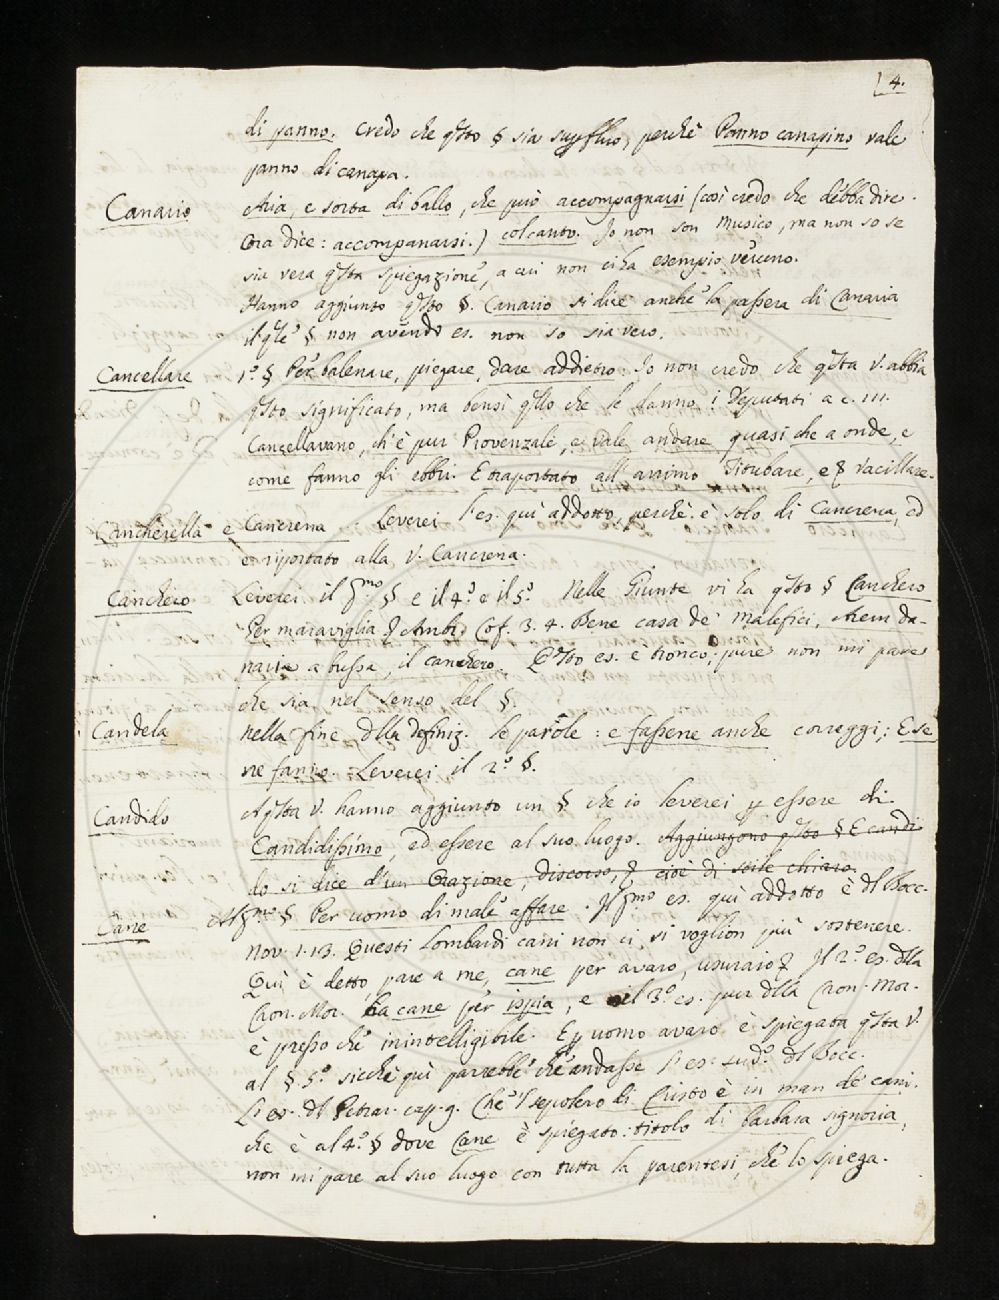 4.
di panno. Credo che q̃sto § sia supfluo, perchè Panno canapino vale
panno di canapa.
Canario Aria, e sorta di ballo, che può accompagnarsi (così credo che debba dire.
Ora dice: accompanarsi.) col canto. Io non son Musico, ma non so se
sia vera q̃sta spiegazione, a cui non ci ha esempio veruno.
Hanno aggiunto q̃sto §. Canario si dice anche la passera di Canaria
il q̃le § non avendo es. non so sia vero.
Cancellare 1.° § Per balenare, piegare, dare addietro: Io non credo che q̃sta V. abbia
q̃sto significato, ma bensì q̃llo che le danno i Deputati a c. 111.
Cancellavano, ch'è pur Provenzale, e vale andare quasi che a onde, e
come fanno gli ebbri. E traportato all'animo Titubare, e Vacillare.
Cancherella e Cancrena Leverei l'es. quì addotto, perchè è solo di Cancrena, ed
è riportato alla V. Cancrena.
Canchero Leverei il pmo § e il 4.° e il 5.° Nelle Giunte vi ha q̃sto § Canchero
Per maraviglia Ambr. Cof. 3. 4. Bene casa de' Malefici, Arem da-
naria a bussa, il canchero. Q̃sto es. è tronco; pure non mi pare
che sia nel senso del §.
Candela nella fine dlla definiz. le parole: e fassene anche correggi; E se
ne fanno. Leverei il 2.° §.
Candido A q̃sta V. hanno aggiunto un § che io leverei p essere di
Candidissimo, ed essere al suo luogo. Aggiungono q̃sto § E candi
do si dice d'un Orazione, discorso, cioè di stile chiaro.
Cane Al pmo § Per uomo di male affare. Il pmo es. quì addotto è dl Bocc.
nov. 1. 13. Questi Lombardi cani non ci si voglion più sostenere.
Quì è detto, pare a me, cane per avaro, usuraio Il 2.° es. dlla
Cron. Mor. ha cane per ispia; e il 3.° es. pur dlla Cron. Mor.
è presso che inintelligibile. E p uomo avaro è spiegata q̃sta V.
al § 5.° sicchè quì parrebbe che andasse l'es. sud.° dl Bocc.
L'es. dl Petrar. cap. 9. Che 'l sepolcro di Cristo è in man de' cani.
che è al 4.° § dove Cane è spiegato: titolo di barbara signoria,
non mi pare al suo luogo con tutta la parentesi, che lo spiega.